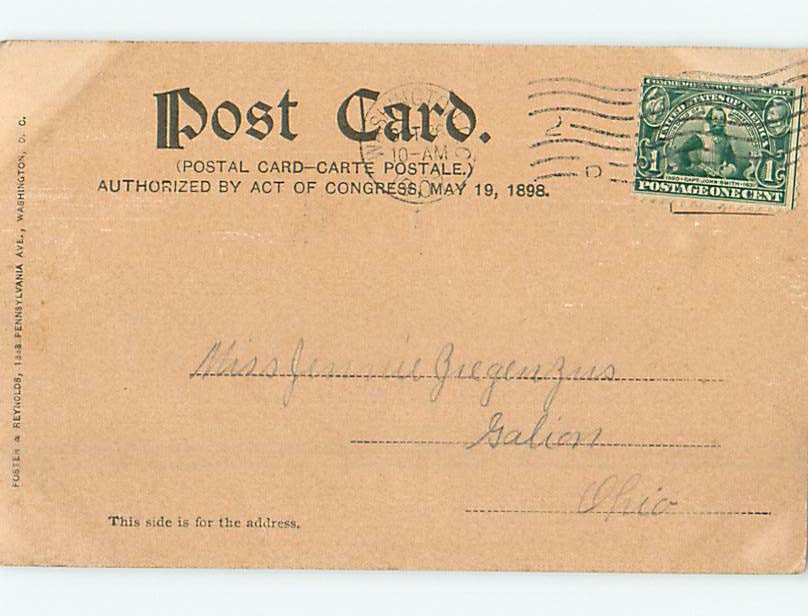 Post Card.
(POSTAL CARD—CARTE POSTALE.)
AUTHORIZED BY ACT OF CONGRESS, MAY 19, 1898.
WASHINGTON
10-AM
UNITED STATES OF AMERICA
1 1
1580 CAPT. JOHN SMITH 1631
POSTAGE ONE CENT
FOSTER & REYNOLDS, PENNSYLVANIA AVE., WASHINGTON, D. C.
Miss Jennie Ziegenzus
Galion
Ohio
This side is for the address.